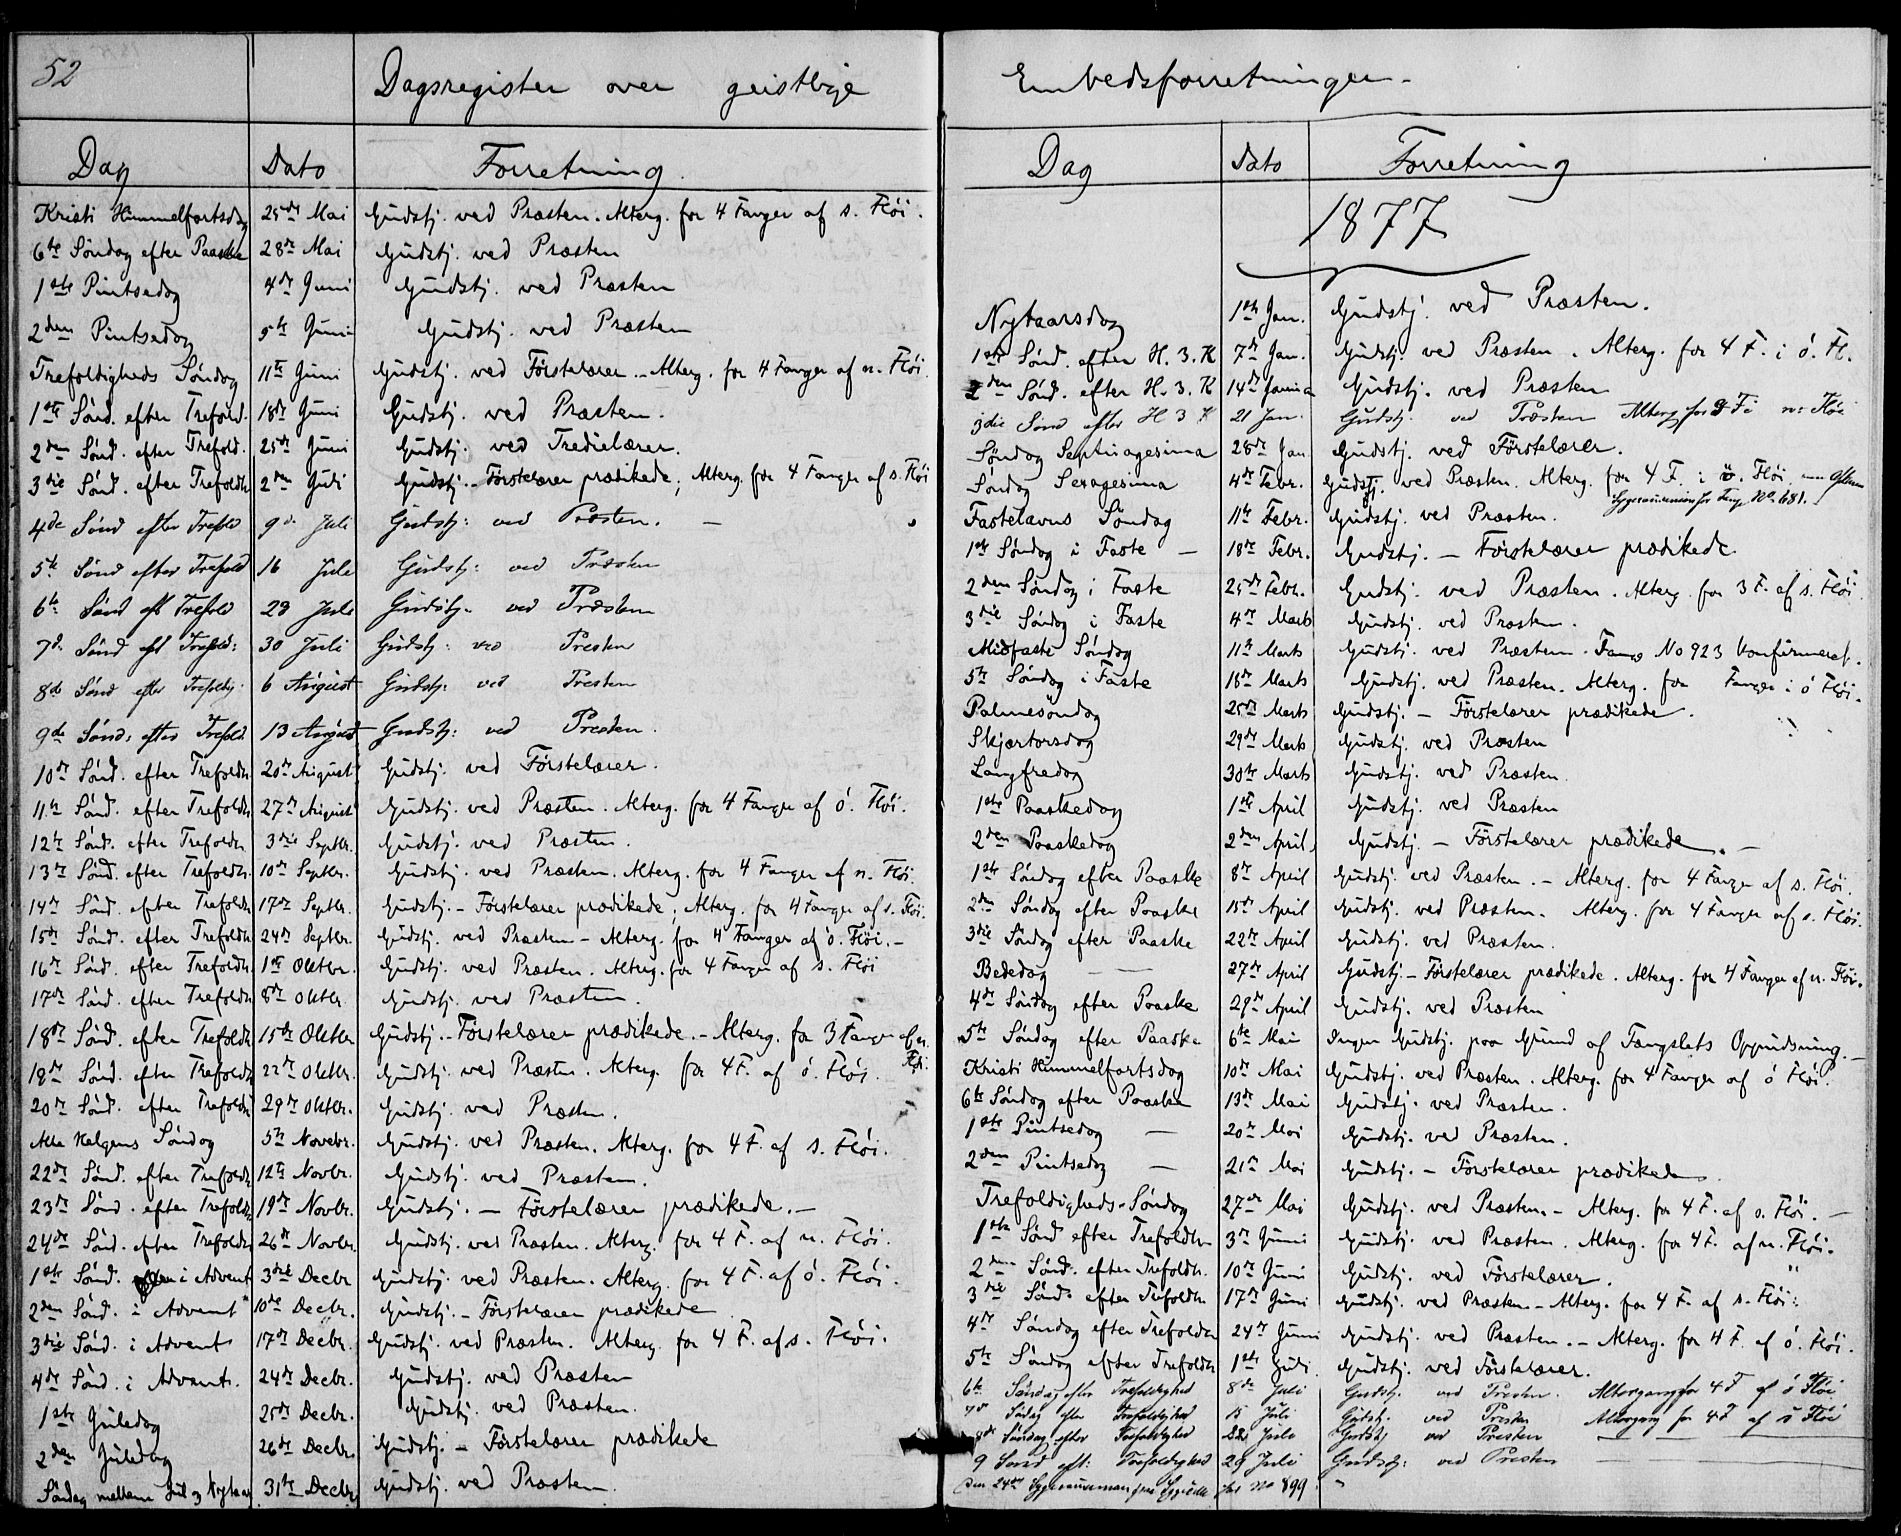 52
Dagsregister over geistlige
Dag Dato Forretning
Kristi Himmelfartsdag 25de Mai Gudstj. ved Præsten. Alterg. for 4 Fanger af s. Fløi.
6te Søndag efter Paaske 28de Mai Gudstj. ved Præsten
1ste Pintsedag 4de Juni Gudstj. ved Præsten
2den Pintsedag 5te Juni Gudstj. ved Præsten
Trefoldigheds Søndag 11te Juni Gudstj. ved Förstelærer. - Alterg. for 4 Fanger af n. Fløi.
1ste Sönd. efter Trefold. 18de Juni Gudstj. ved Præsten.
2den Sönd. efter Trefold. 25de Juni Gudstj. ved Tredielærer.
3die Sönd. efter Trefoldh 2den Juli Gudstj. - Förstelærer prædikede; Alterg. for 4 Fanger af s. Fløi
4de Sönd efter Trefold 9de Juli Gudstj: ved Præsten. -
5te Sönd efter Trefold 16 Juli Gudstj: ved Præsten
6te Sönd eft Trefold 23 Juli Gudstj: ved Præsten
7de Sönd eft Trefold: 30 Juli Gudstj: ved Presten
8de Sönd efter Trefoldj. 6 August Gudstj: ved Presten
9de Sönd: efter Trefold. 13 August Gudstj: ved Presten.
10de Sönd. efter Trefoldh 20de August Gudstj. ved Förstelærer.
11te Sönd. efter Trefoldh 27de August Gudstj. ved Præsten. Alterg. for 4 Fanger af ö. Fløi.
12te Sönd. efter Trefoldh. 3die Septbr. Gudstj. ved Præsten.
13de Sönd. efter Trefoldh. 10de Septbr. Gudstj. ved Præsten. Alterg. for 4 Fanger af n. Fløi.
14de Sönd. efter Trefoldh 17de Septbr. Gudstj. - Förstelærer prædikede; Alterg. for 4 Fanger af s. Fløi.
15de Sönd. efter Trefoldh 24de Septbr. Gudstj. ved Præsten - Alterg. for 4 Fanger af ö. Fløi. -
16de Sönd. efter Trefoldh. 1ste Oktbr. Gudstj. ved Præsten. Alterg. for 4 Fanger af s. Fløi
17de Sönd. efter Trefoldh 8de Oktbr. Gudstj. ved Præsten.
18de Sönd. efter Trefoldh 15de Oktbr Gudstj. - Förstelærer prædikede. - Alterg. for 3 Fanger af n.
Fløi.
19de Sönd. efter Trefoldh 22de Oktbr. Gudstj. ved Præsten. Alterg. for 4 F. af ö. Fløi.
20de Sönd. efter Trefoldh 29de Oktbr. Gudstj. ved Præsten.
Alle Helgens Söndag 5te Novebr. Gudstj. ved Præsten. Alterg. for 4 F. af s. Fløi.
22de Sönd. efter Trefoldh 12te Novbr. Gudstj. ved Præsten.
23de Sönd. efter Trefoldh 19de Novbr. Gudstj. - Förstelærer prædikede. -
24de Sönd. efter Trefoldh 26de Novbr. Gudstj. ved Præsten. Alterg. for 4 F. af n. Fløi.
1ste Sönd. i Advent 3die Decbr Gudstj. ved Præsten. Alterg. for 4 F. af ö. Fløi.
2den Sönd. i Advent 10de Decbr. Gudstj. - Förstelærer prædikede
3die Sönd. i Advent 17de Decbr. Gudstj. ved Præsten. Alterg. for 4 F. af s. Fløi.
4de Sönd. i Advent. 24de Decbr. Gudstj. ved Præsten
1ste Juledag 25de Decbr. Gudstj. ved Præsten.
2den Juledag 26de Decbr. Gudstj. - Förstelærer prædikede
Söndag mellem Jul og Nytaar 31te Decbr. Gudstj. ved Præsten.
Embedsforretninger -
Dag Dato Forretning
1877
Nytaarsdag 1ste Jan. Gudstj. ved Præsten.
1ste Sönd. efter H. 3. K 7de Jan. Gudstj. ved Præsten. Alterg. for 4 F. i ö. Fl.
2den Sönd. efter H. 3. K 14de Janua Gudstj. ved Præsten
3die Sönd efter H 3 K 21 Jan. Gudstj. ved Præsten Alterg for F i n. Fløi
Söndag Septuagesima 28de Jan Gudstj. ved Förstelærer.
Söndag Sexagesima 4de Febr. Gudstj. ved Præsten. Alterg. for 4 F. i ö. Fløi.
Sygecommunion for Fang No. 681.
Fastelavns Söndag 11te Febr. Gudstj. ved Præsten.
1ste Söndag i Faste - 18de Febr. Gudstj. - Förstelærer prædikede
2den Söndag i Faste 25de Febr. Gudstj. ved Præsten. Alterg. for 3 F. af s. Fløi.
3die Söndag i Faste 4de Marts Gudstj. ved Præsten.
Midfaste Söndag 11te Marts Gudstj. ved Præsten. Fange No 923 konfirmeret.
5te Söndag i Faste 18de Marts Gudstj. ved Præsten. Alterg. for Fanger i ö Fløi.
Palmesöndag 25de Marts Gudstj. - Förstelærer prædikede.
Skjærtorsdag 29de Marts Gudstj. ved Præsten
Langfredag 30te Marts Gudstj. ved Præsten.
1ste Paaskedag 1ste April Gudstj. ved Præsten
2den Paaskedag 2den April Gudstj. - Förstelærer prædikede. -
1ste Söndag efter Paaske 8de April Gudstj. ved Præsten. - Alterg. for 4 Fanger af s. Fløi.
2den Söndag efter Paaske 15de April Gudstj. ved Præsten. Alterg. for 4 Fanger af s. Fløi.
3die Söndag efter Paaske 22de April Gudstj. ved Præsten.
Bededag 27de April Gudstj. - Förstelærer prædikede. Alterg. for 4 Fanger af n. Fløi.
4de Söndag efter Paaske 29de April Gudstj. ved Præsten
5te Söndag efter Paaske 6te Mai Ingen Gudstj. paa Grund af Fængslets Oppudsning. -
Kristi Himmelfartsdag 10de Mai Gudstj. ved Præsten. Alterg. for 4 Fanger af ö Fløi.
6te Söndag efter Paaske 13de Mai Gudstj. ved Præsten.
1ste Pintsedag - 20de Mai Gudstj. ved Præsten.
2den Pintsedag - 21de Mai Gudstj. - Förstelærer prædikede.
Trefoldigheds-Söndag 27de Mai Gudstj. ved Præsten. - Alterg. for 4 F. af s. Fløi. -
1ste Sönd efter Trefoldh 3de Juni Gudstj. ved Præsten. Alterg. for 4 F. af n. Fløi.
2den Sönd. efter Trefoldh. 10de Juni Gudstj. ved Förstelærer. "
3die Sönd. efter Trefoldh 17de Juni Gudstj. ved Præsten - Alterg. for 4 F. af s. Fløi.
4de Söndag efter Trefoldh 24de Juni Gudstj. ved Præsten. - Alterg. for 4 F. af ö. Fløi.
5te Söndag efter Trefoldh 1ste Juli Gudstj. ved Förstelærer.
6te Söndag efter Trefoldighed 8de Juli Gudstj. ved Presten. Altergang for 4 F af ö Fløi
7de Södag efter Trefoldighed 15 Juli Gudstj. ved Presten Altergang for 4 F af s Fløi
8de Söndag efter Trefoldighed 22 Juli Gudstj ved Presten - -
9 Sönd eft: Trefoldighed 29 Juli Gudstj: ved Presten - -
Den 24de for No 899 "